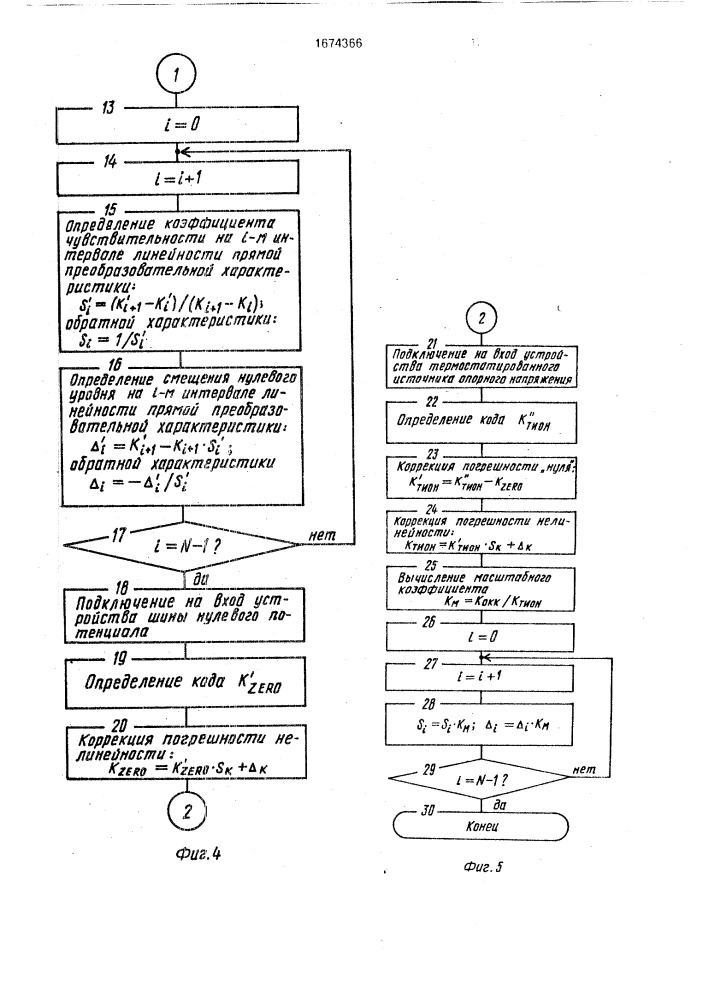 1674366
1
13
i=0
14
i=i+1
15
Определение коэффициента
чувствительности на i-м ин-
тервале линейности прямой
преобразовательной характе-
ристики:
S'i=(K'i+1−K'i)/(Ki+1−Ki);
обратной характеристики:
Si=1/S'i
16
Определение смещения нулевого
уровня на i-м интервале ли-
нейности прямой преобразо-
вательной характеристики:
Δ'i=K'i+1−Ki+1·S'i;
обратной характеристики
Δi=−Δ'i/S'i
17
i=N-1?
нет
да
18
Подключение на вход уст-
ройства шины нулевого по-
тенциала
19
Определение кода K'ZERO
20
Коррекция погрешности не-
линейности:
KZERO=K'ZERO·SK+ΔK
2
Фиг.4
2
21
Подключение на вход устрой-
ства термостатированного
источника опорного напряжения
22
Определение кода K''ТИОН
23
Коррекция погрешности „нуля":
K'ТИОН=K''ТИОН−KZERO
24
Коррекция погрешности нели-
нейности:
KТИОН=K'ТИОН·SK+ΔK
25
Вычисление масштабного
коэффициента
KМ=KОКК/KТИОН
26
i=0
27
i=i+1
28
Si=Si·KМ; Δi=Δi·KМ
29
i=N-1?
нет
да
30
Конец
Фиг.5